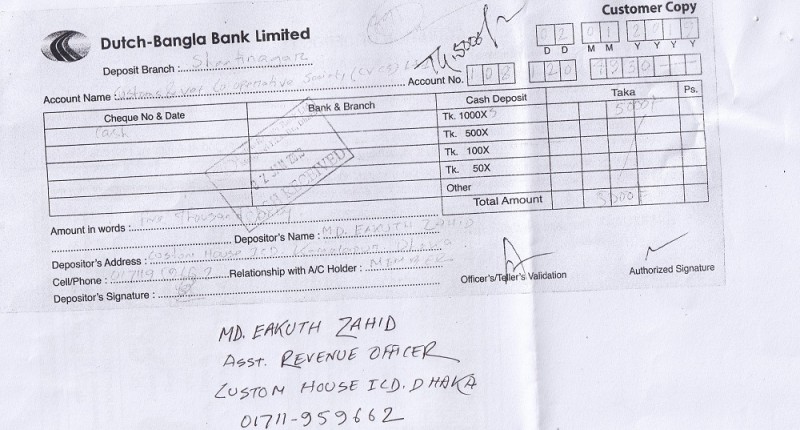 Customer Copy
Dutch-Bangla Bank Limited
Tk. 5000/-
02 01 201
D D M M Y Y Y Y
Deposit Branch :
Account Name : Co-operative Society
Account No. 108 120
Cheque No & Date Bank & Branch Cash Deposit Taka Ps.
Cash Tk. 1000X5 5000/-
Tk. 500X
Tk. 100X
Tk. 50X
Other
Total Amount 5000/-
RECEIVED
Amount in words : five thousand only
Depositor's Name : MD. EAKUTH ZAHID
Depositor's Address : Custom House ICD Kamalapur Dhaka
Cell/Phone : Relationship with A/C Holder : MEMBER
Depositor's Signature :
Officer's/Teller's Validation
Authorized Signature
MD. EAKUTH ZAHID
ASST. REVENUE OFFICER
CUSTOM HOUSE ICD. DHAKA
01711-959662